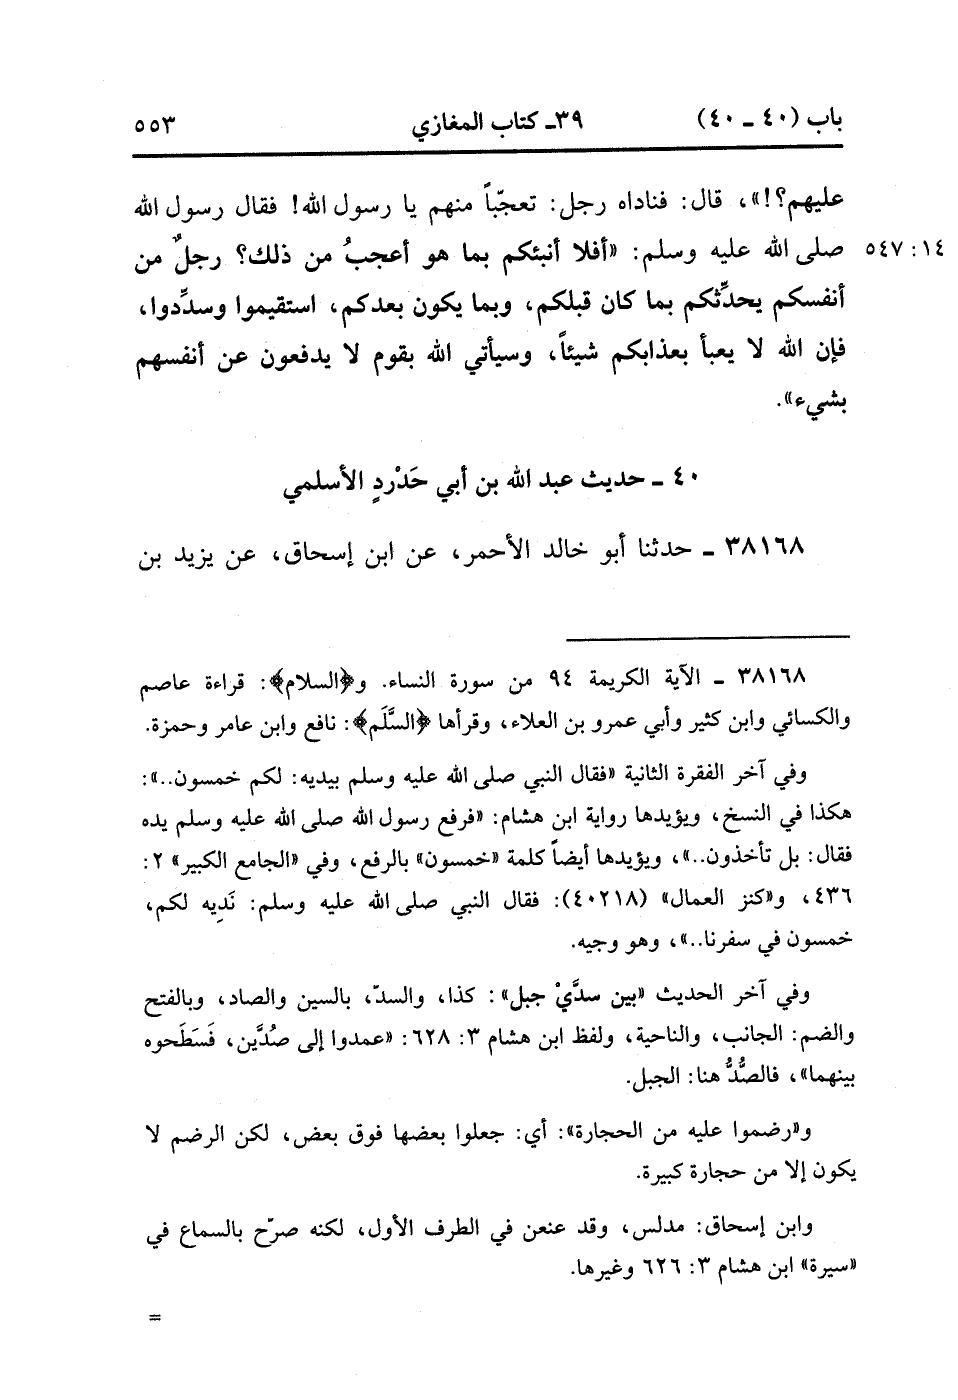 باب (٤٠ ـ ٤٠) ٣٩ـ كتاب المغازي ٥٥٣
عليهم؟!»، قال: فناداه رجل: تعجّباً منهم يا رسول الله! فقال رسول الله
صلى الله عليه وسلم: «أفلا أنبئكم بما هو أعجبُ من ذلك؟ رجلٌ من
١٤: ٥٤٧
أنفسكم يحدِّثكم بما كان قبلكم، وبما يكون بعدكم، استقيموا وسدِّدوا،
فإن الله لا يعبأ بعذابكم شيئاً، وسيأتي الله بقوم لا يدفعون عن أنفسهم
بشيء».
٤٠ ـ حديث عبد الله بن أبي حَدْردٍ الأسلمي
٣٨١٦٨ ـ حدثنا أبو خالد الأحمر، عن ابن إسحاق، عن يزيد بن
٣٨١٦٨ ـ الآية الكريمة ٩٤ من سورة النساء. و﴿السلام﴾: قراءة عاصم
والكسائي وابن كثير وأبي عمرو بن العلاء، وقرأها ﴿السَّلَم﴾: نافع وابن عامر وحمزة.
وفي آخر الفقرة الثانية «فقال النبي صلى الله عليه وسلم بيديه: لكم خمسون..»:
هكذا في النسخ، ويؤيدها رواية ابن هشام: «فرفع رسول الله صلى الله عليه وسلم يده
فقال: بل تأخذون..»، ويؤيدها أيضاً كلمة «خمسون» بالرفع، وفي «الجامع الكبير» ٢:
٤٣٦، و«كنز العمال» (٤٠٢١٨): فقال النبي صلى الله عليه وسلم: نَدِيه لكم،
خمسون في سفرنا..»، وهو وجيه.
وفي آخر الحديث «بين سدَّيْ جبل»: كذا، والسدّ، بالسين والصاد، وبالفتح
والضم: الجانب، والناحية، ولفظ ابن هشام ٣: ٦٢٨: «عمدوا إلى صُدَّين، فَسَطَحوه
بينهما»، فالصُّدُّ هنا: الجبل.
و«رضموا عليه من الحجارة»: أي: جعلوا بعضها فوق بعض، لكن الرضم لا
يكون إلا من حجارة كبيرة.
وابن إسحاق: مدلس، وقد عنعن في الطرف الأول، لكنه صرّح بالسماع في
«سيرة» ابن هشام ٣: ٦٢٦ وغيرها.
=